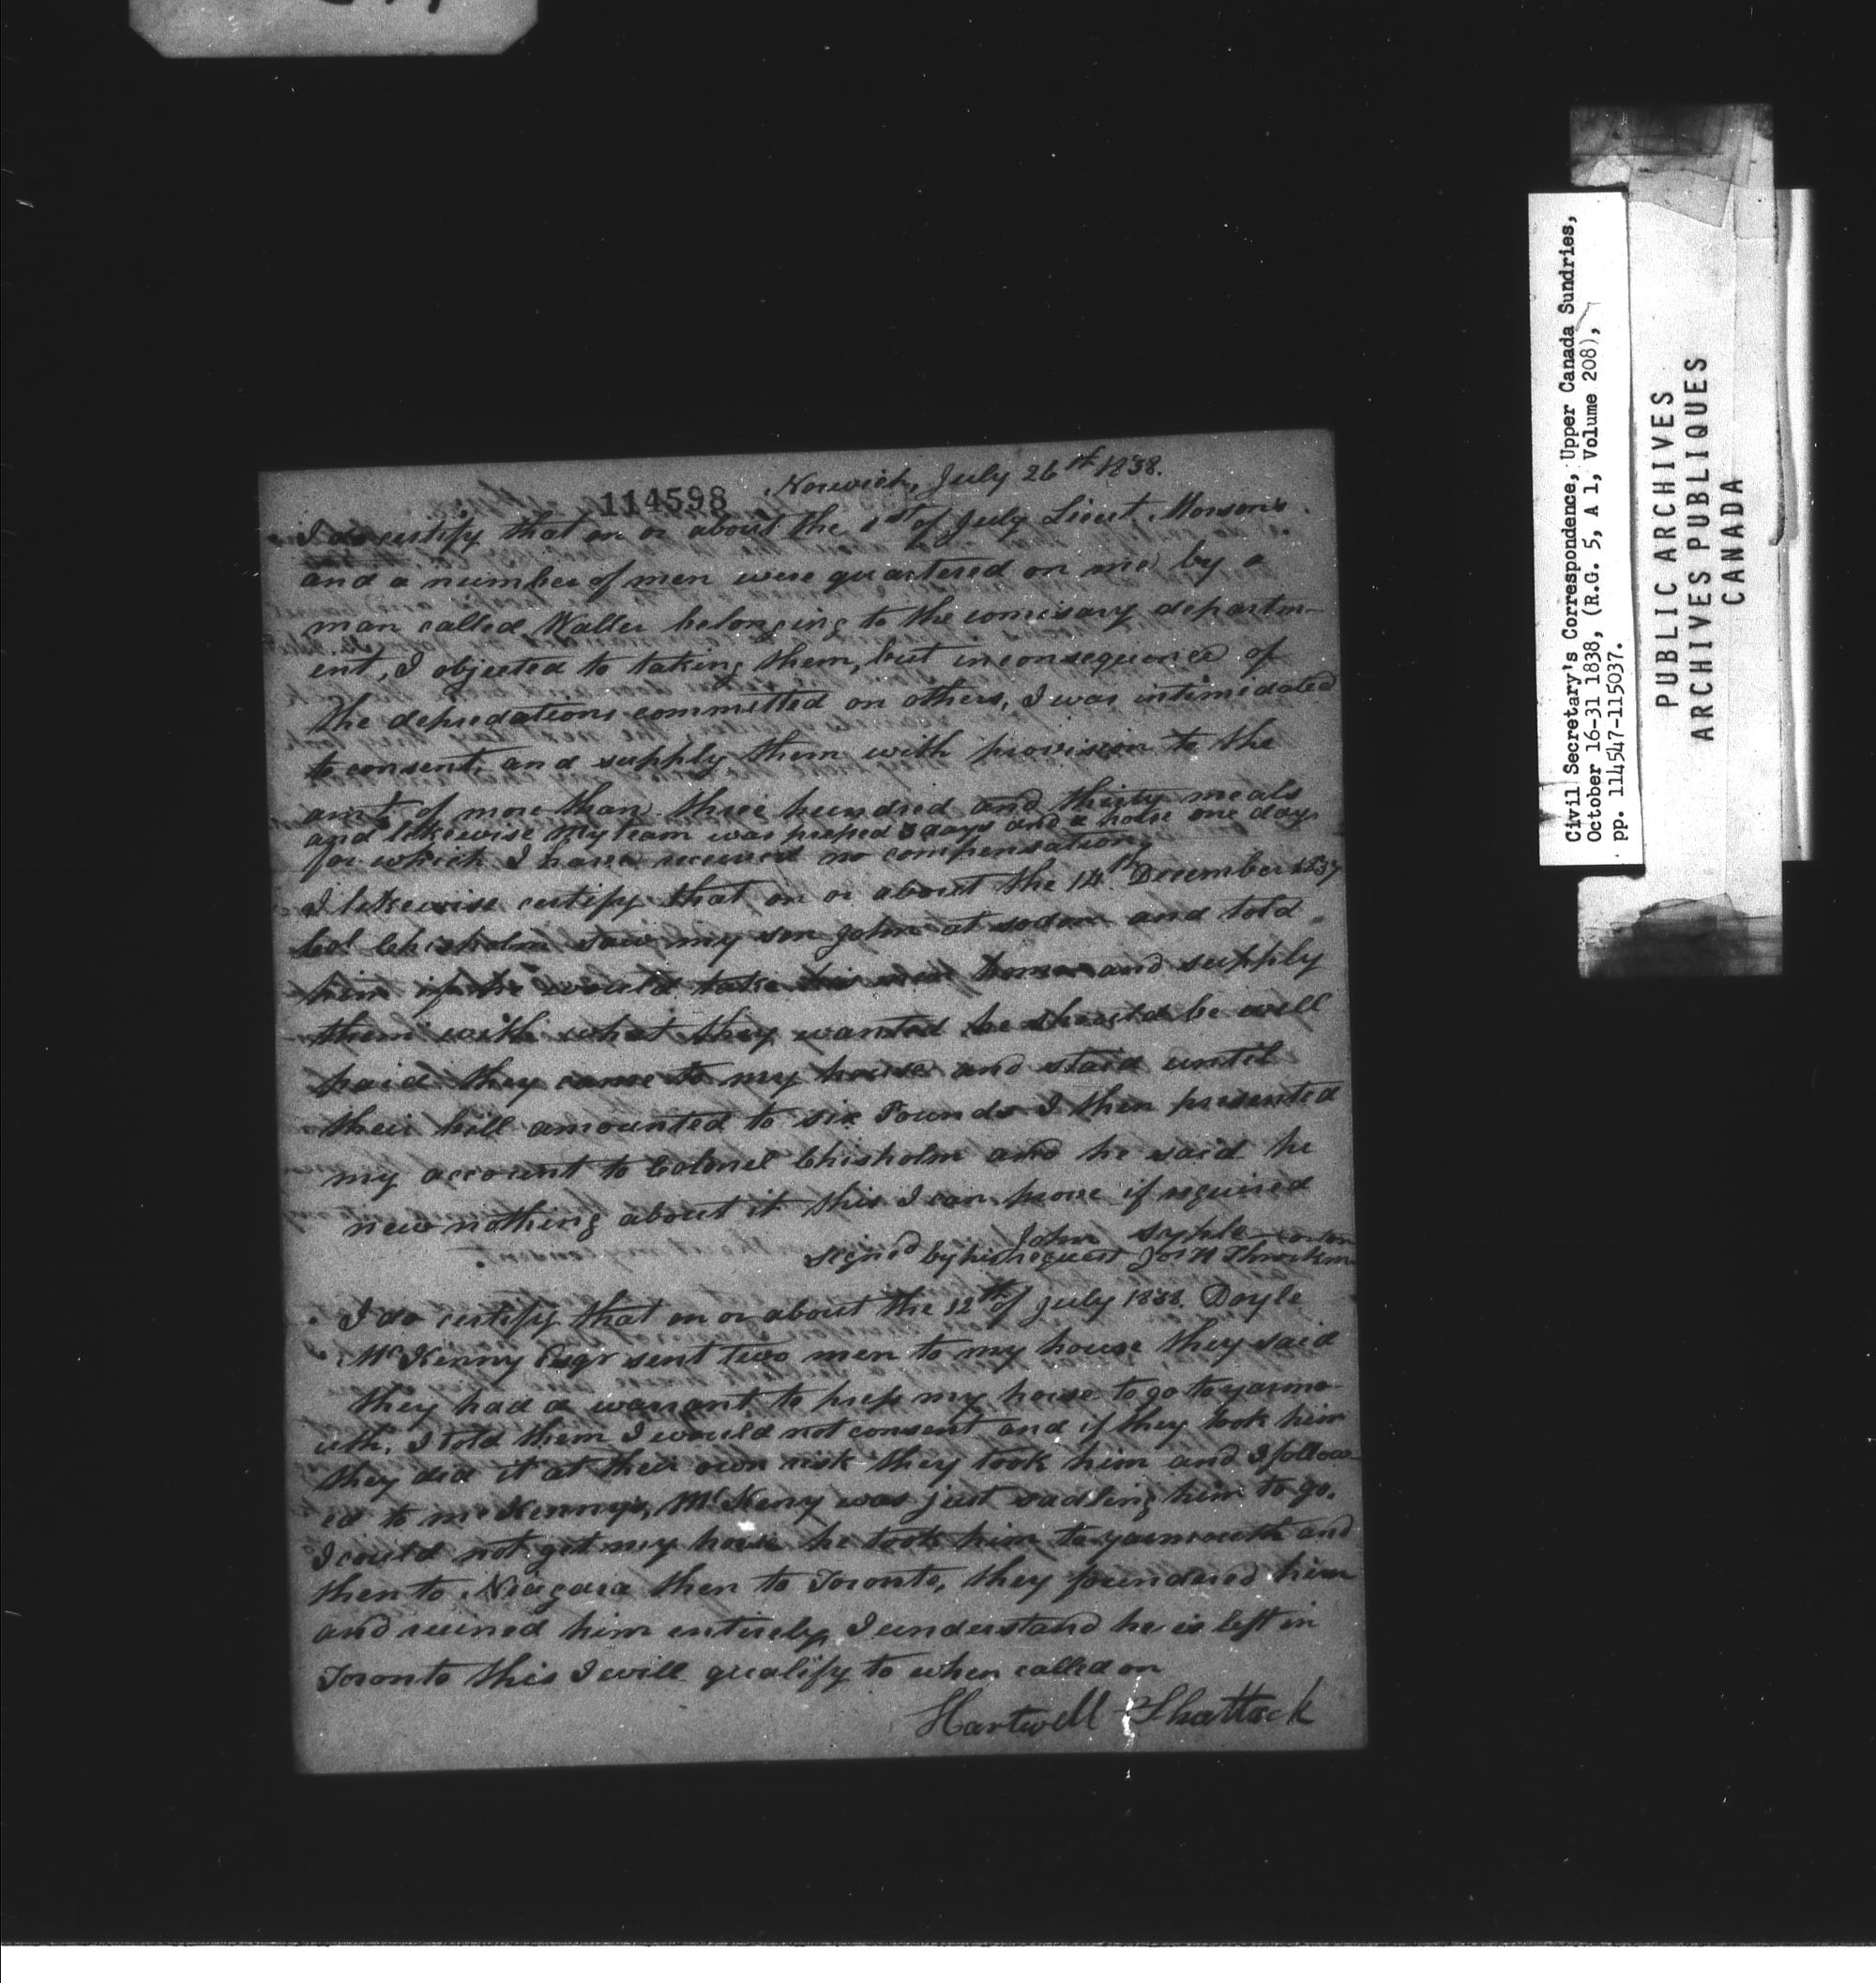 Norwich, July 26th 1838.
114598
I do certify that on or about the 1st of July Lieut. Monson's
and a number of men were quartered on me by a
man called Waller belonging to the comisary departm-
ent, I objected to taking them, but in consequence of
the depredations committed on others, I was intimidated
to consent, and supply them with provision to the
amt. of more than three hundred and thirty meals
and likewise my team was presed 3 days and a horse one day
for which I have received no compensation,
I likewise certify that on or about the 14th December 1837
Col Chisholm saw my son John at sodom and told
him if he would take his men home and supply
them with what they wanted he should be well
paid they came to my house and staid until
their bill amounted to six Pounds I then presented
my account to Colonel Chisholm and he said he
new nothing about it this I can prove if required
John
signed by his request Jos H
I do certify that on or about the 12th of July 1838. Doyle
McKenny Esqr sent two men to my house they said
they had a warrant to press my horse to go to yarmo-
uth. I told them I would not consent and if they took him
they did it at their own risk they took him and I follow-
ed to mcKenny's, McKeny was just sadling him to go.
I could not get my horse he took him to yarmouth and
then to Niagara then to Toronto, they foundered him
and ruined him entirely, I understand he is left in
Toronto this I will qualify to when called on
Hartwell Shattuck
Civil Secretary's Correspondence, Upper Canada Sundries,
October 16-31 1838, (R.G. 5, A 1, Volume 208),
pp. 114547-115037.
PUBLIC ARCHIVES
ARCHIVES PUBLIQUES
CANADA